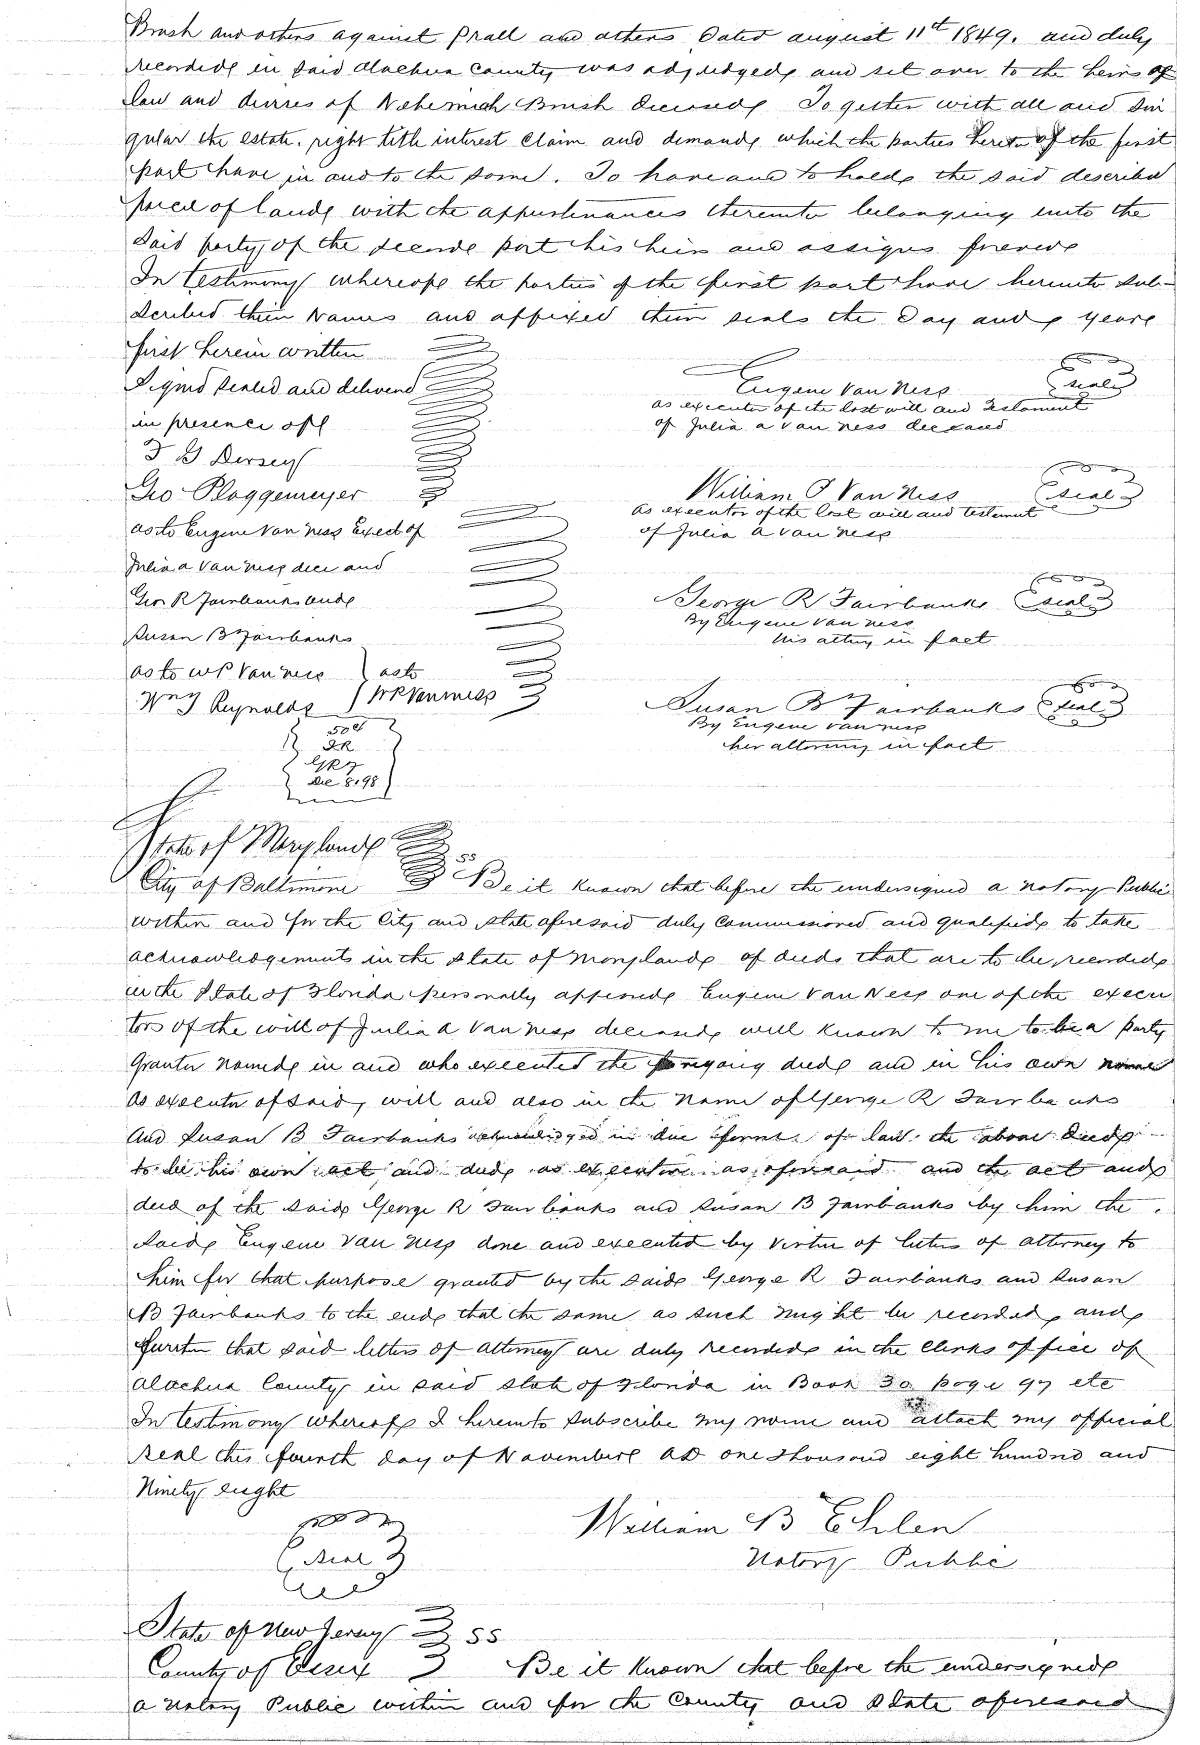 Brush and others against Prall and others Dated august 11th 1849. and duly
recorded in said Alachua County was adjudged and set over to the heirs of
law and devises of Nehemiah Brush deceased Together with all and Sin
gular the estate. right title interest Claim and demand which the parties hereto of the first
part have in and to the same. To have and to hold the said described
parcel of land with the appurtenances thereunto belonging unto the
Said party of the second part his heirs and assigns forever
In testimony whereof the parties of the first part have hereunto sub-
scribed their Names and affixed their seals the Day and year
first herein written
Signed sealed and delivered
in presence of
F G Dorsey
Geo Plaggemeyer
as to Eugene Van Ness Exect of
Julia a Van Ness decd and
Geo R Fairbanks and
Susan B Fairbanks
as to W P Van ness } as to
Wm J Reynolds } W P Van ness
50¢
IR
GRF
Dec 8.98
Eugene Van Ness seal
as executor of the last will and Testament
of Julia a Van Ness deceased
William P Van Ness seal
as executor of the last will and testament
of Julia a Van Ness
George R Fairbanks seal
By Eugene Van ness
his attny in fact
Susan B Fairbanks seal
By Eugene Van ness
her attorney in fact
State of Maryland
City of Baltimore ss Be it Known that before the undersigned a Notary Public
within and for the City and state aforesaid duly Commissioned and qualified to take
acknowledgements in the State of Maryland of deeds that are to be recorded
in the State of Florida personally appeared Eugene Van Ness one of the execu
tors of the will of Julia a Van Ness deceased well Known to me to be a party
Grantor Named in and who executed the foregoing deed and in his own name
As executor of said will and also in the Name of George R Fairbanks
And Susan B Fairbanks acknowledged in due form of law the above Deed
to be his own act and deed as executor as aforesaid and the act and
deed of the said George R Fairbanks and Susan B Fairbanks by him the
Said Eugene Van Ness done and executed by virtue of letters of attorney to
him for that purpose granted by the said George R Fairbanks and Susan
B Fairbanks to the end that the same as such might be recorded and
further that said letters of attorney are duly recorded in the Clerks office of
Alachua County in said state of Florida in Book 30 page 97 etc
In testimony whereof I hereunto subscribe my name and attach my official
seal this fourth day of November AD one thousand eight hundred and
Ninety eight
seal
William B Ehlen
Notary Public
State of New Jersey ss
County of Essex Be it Known that before the undersigned
a Notary Public within and for the County and State aforesaid